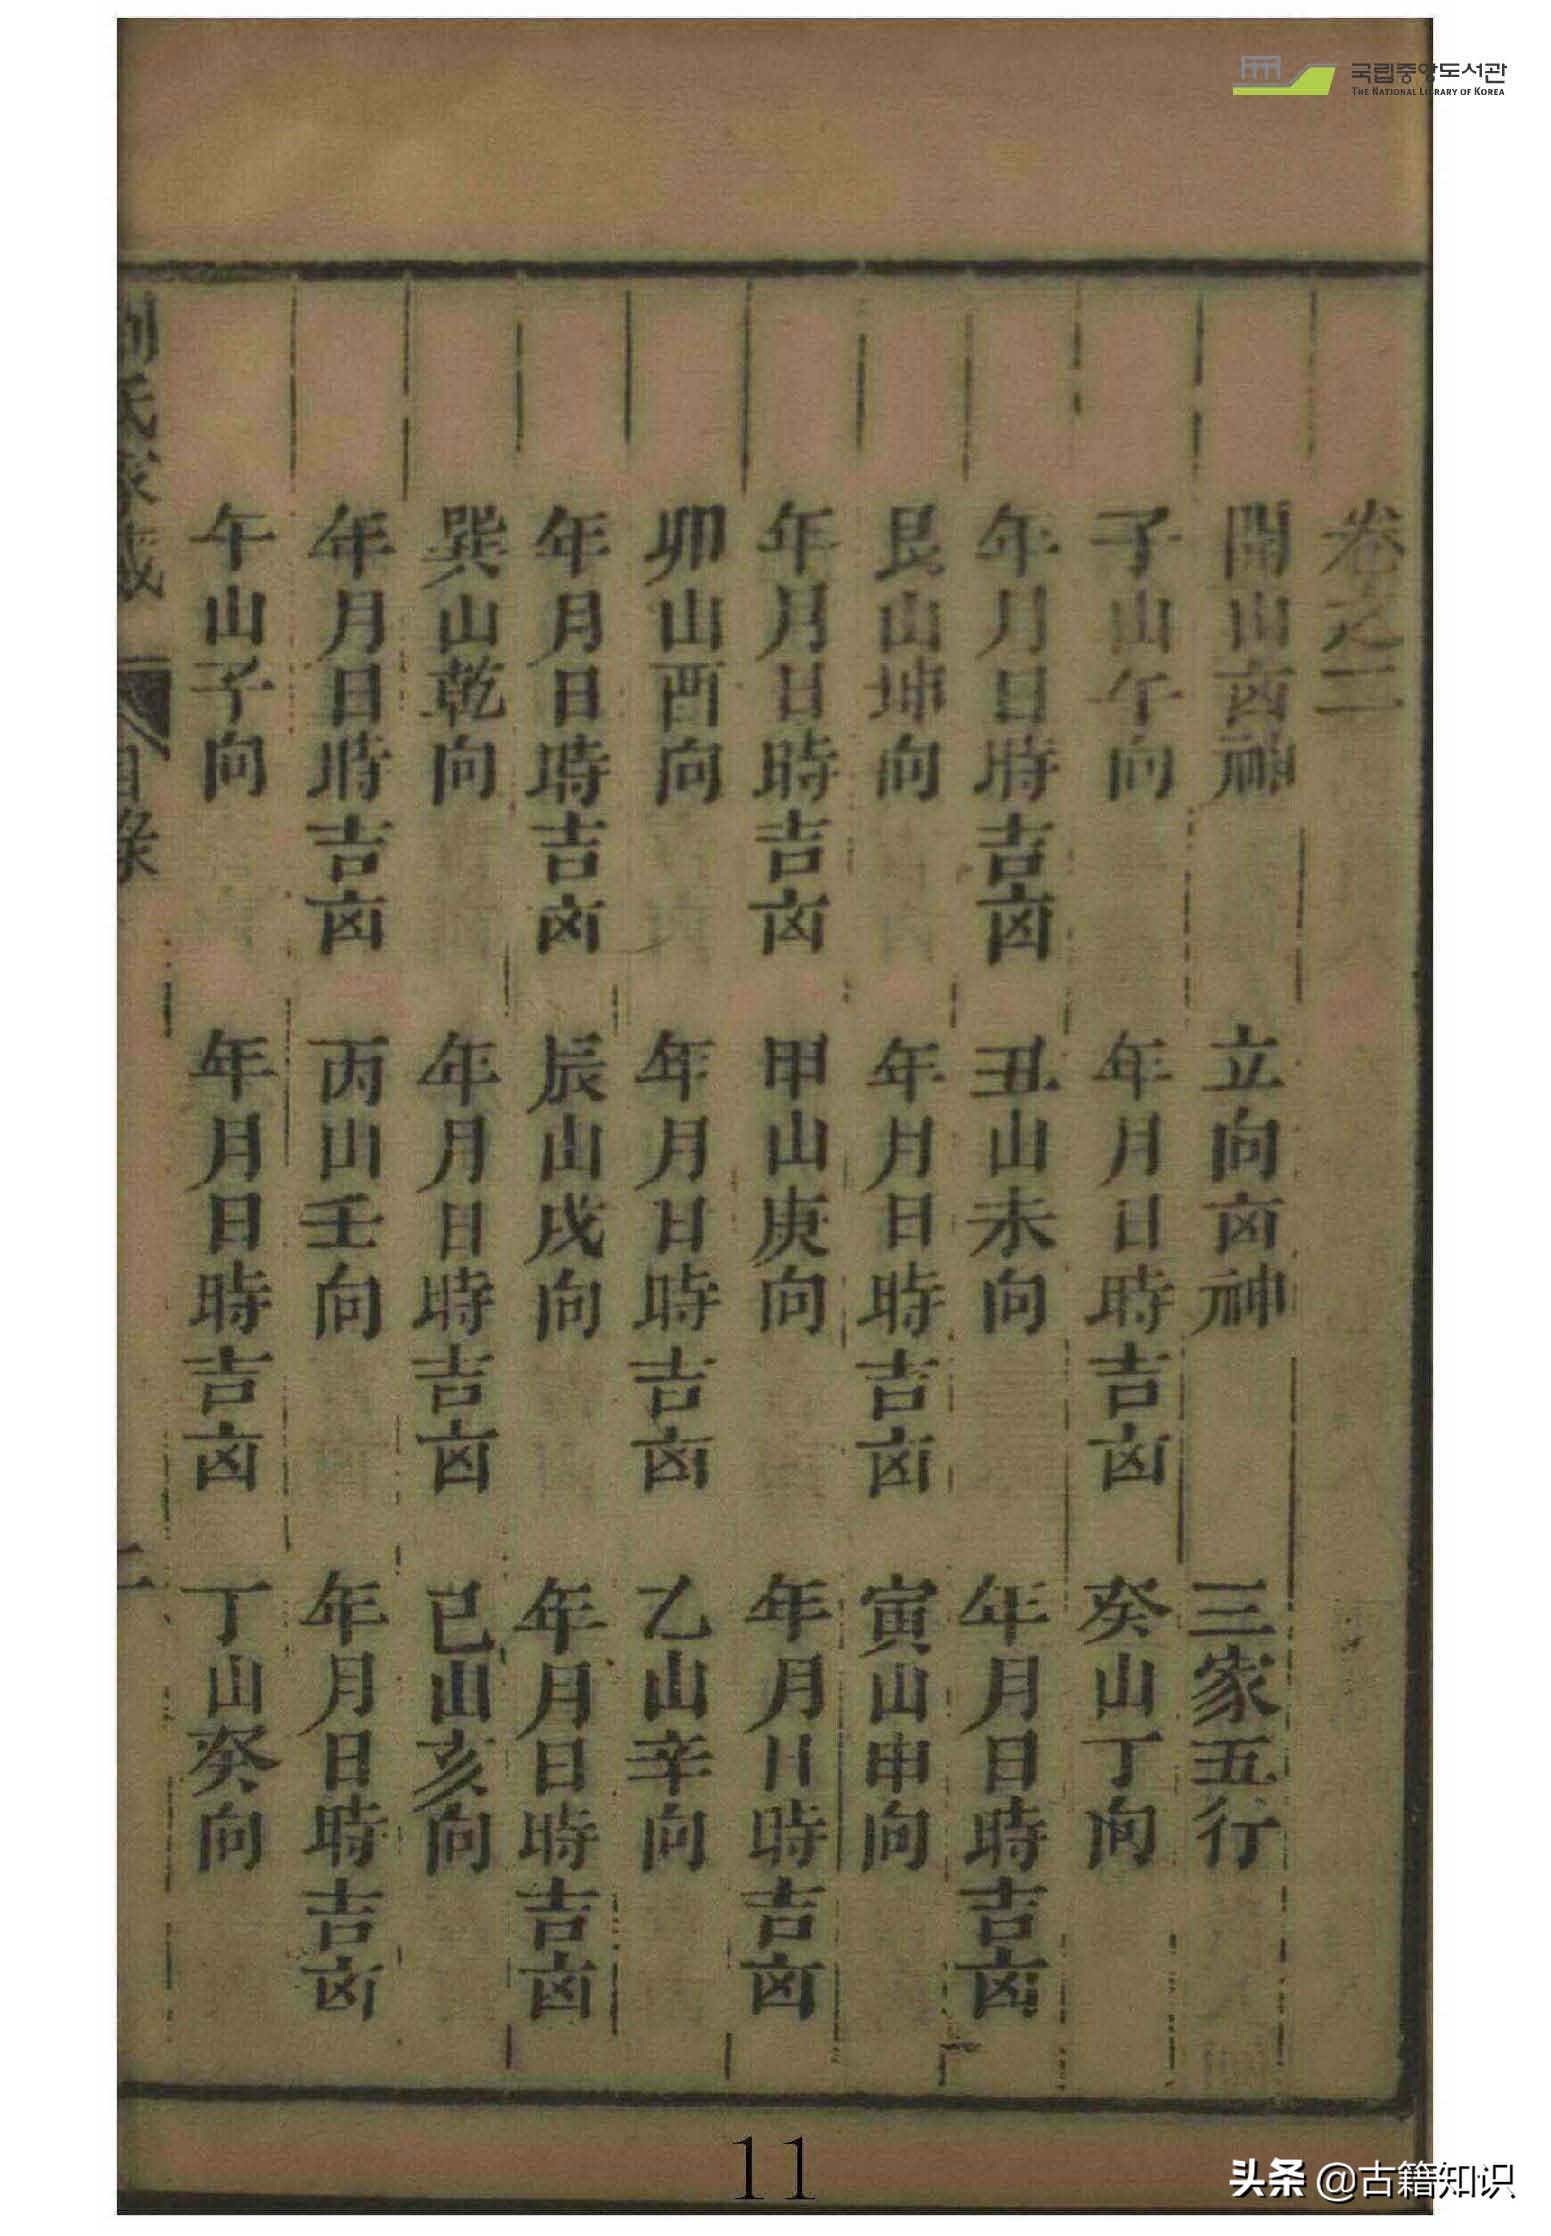 국립중앙도서관
THE NATIONAL LIBRARY OF KOREA
卷之二
開山㐫神 立向㐫神 三家五行
子山午向 年月日時吉㐫 癸山丁向
年月日時吉㐫 丑山未向 年月日時吉㐫
艮山坤向 年月日時吉㐫 寅山申向
年月日時吉㐫 甲山庚向 年月日時吉㐫
卯山酉向 年月日時吉㐫 乙山辛向
年月日時吉㐫 辰山戌向 年月日時吉㐫
巽山乾向 年月日時吉㐫 巳山亥向
年月日時吉㐫 丙山壬向 年月日時吉㐫
午山子向 年月日時吉㐫 丁山癸向
劉氏家藏 目錄 二
11
头条 @古籍知识